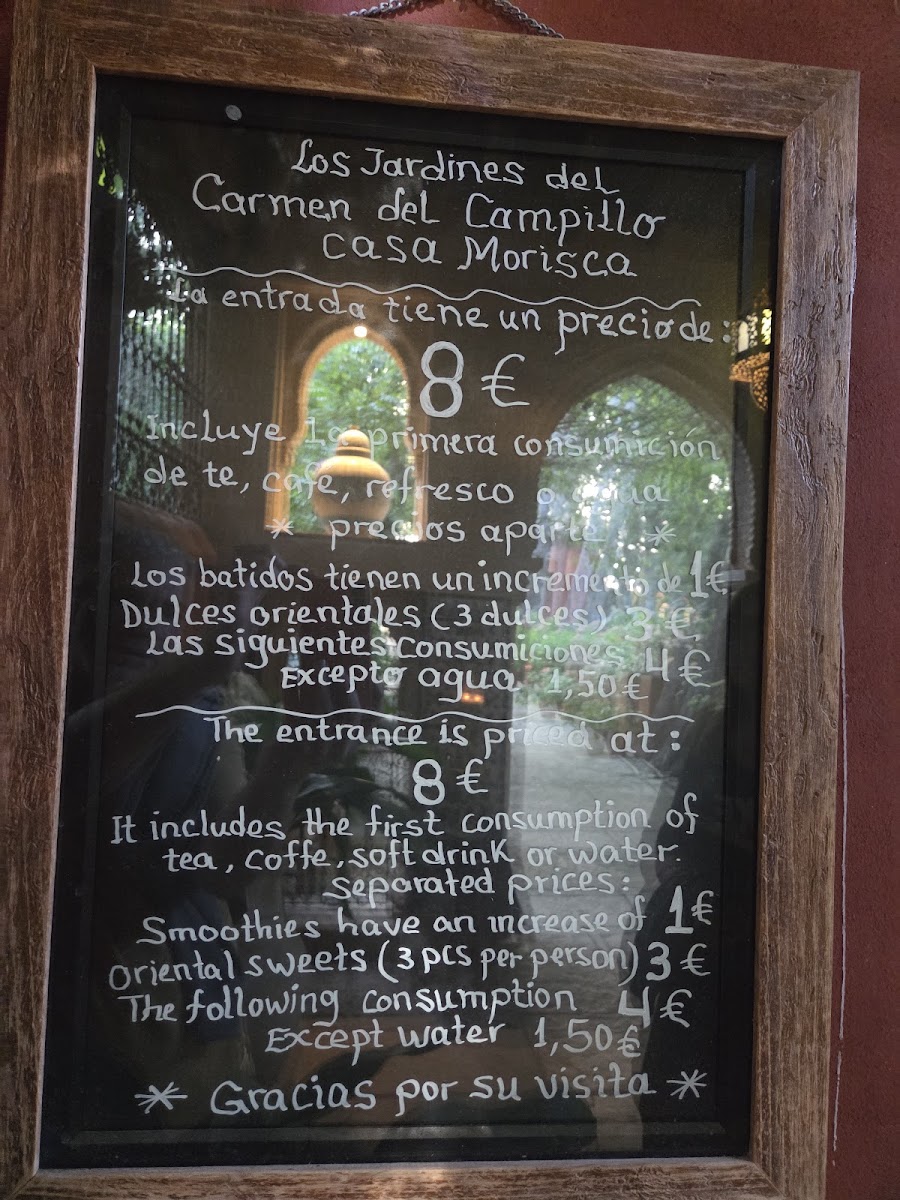 Los Jardines del
Carmen del Campillo
Casa Morisca
La entrada tiene un precio de:
8 €
Incluye la primera consumición
de te, café, refresco o agua
* precios aparte *
Los batidos tienen un incremento de 1€
Dulces orientales (3 dulces) 3 €
Las siguientes consumiciones 4 €
Excepto agua 1,50 €
The entrance is priced at:
8 €
It includes the first consumption of
tea, coffe, soft drink or water.
Separated prices:
Smoothies have an increase of 1€
Oriental sweets (3 pcs per person) 3 €
The following consumption 4 €
Except water 1,50 €
* Gracias por su visita *